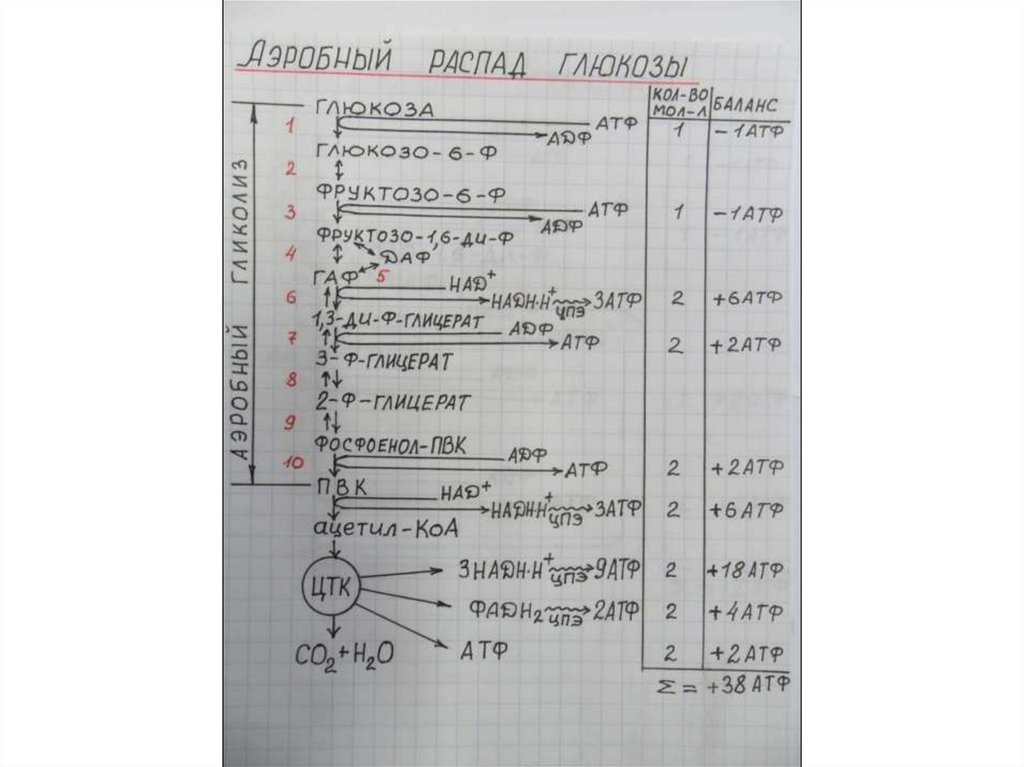 АЭРОБНЫЙ РАСПАД ГЛЮКОЗЫ
КОЛ-ВО МОЛ-Л БАЛАНС
АЭРОБНЫЙ ГЛИКОЛИЗ
ГЛЮКОЗА
1 АТФ 1 -1АТФ
АДФ
ГЛЮКОЗО-6-Ф
2
ФРУКТОЗО-6-Ф
3 АТФ 1 -1АТФ
АДФ
ФРУКТОЗО-1,6-ДИ-Ф
4 ДАФ
ГАФ 5 НАД+
6 НАДН·Н+ ЦПЭ 3АТФ 2 +6АТФ
1,3-ДИ-Ф-ГЛИЦЕРАТ АДФ
7 АТФ 2 +2АТФ
3-Ф-ГЛИЦЕРАТ
8
2-Ф-ГЛИЦЕРАТ
9
ФОСФОЕНОЛ-ПВК АДФ
10 АТФ 2 +2АТФ
ПВК НАД+
НАДН·Н+ ЦПЭ 3АТФ 2 +6АТФ
ацетил-КоА
ЦТК 3НАДН·Н+ ЦПЭ 9АТФ 2 +18АТФ
ФАДН2 ЦПЭ 2АТФ 2 +4АТФ
CO2+H2O АТФ 2 +2АТФ
Σ = +38АТФ